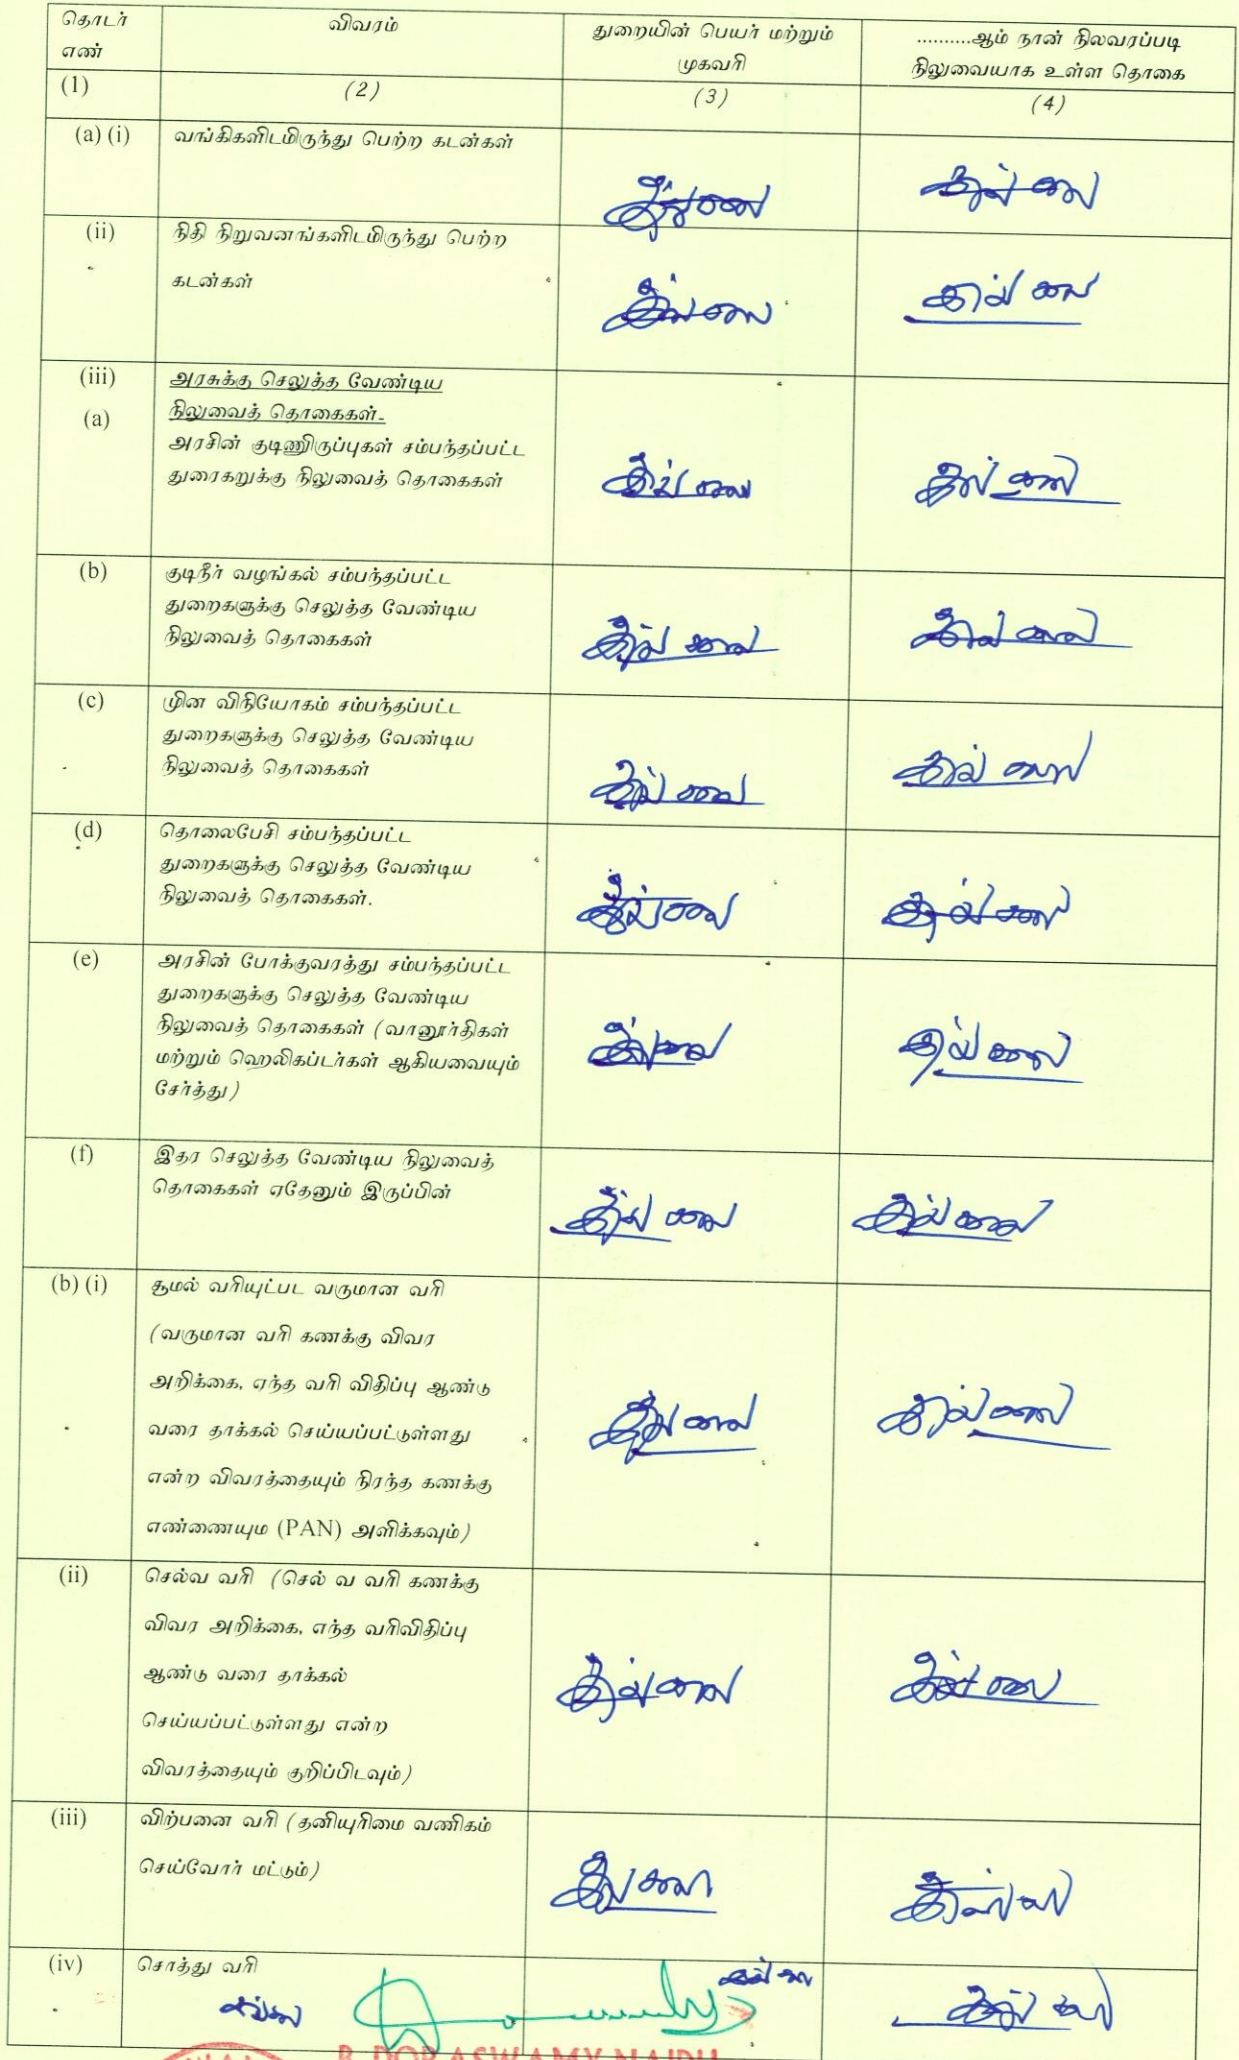 தொடர் எண்
விவரம்
துறையின் பெயர் மற்றும் முகவரி
..........ஆம் நான் நிலவரப்படி நிலுவையாக உள்ள தொகை
(1)
(2)
(3)
(4)
(a) (i)
வங்கிகளிடமிருந்து பெற்ற கடன்கள்
இல்லை
இல்லை
(ii)
நிதி நிறுவனங்களிடமிருந்து பெற்ற
கடன்கள்
இல்லை
இல்லை
(iii)
அரசுக்கு செலுத்த வேண்டிய
(a)
நிலுவைத் தொகைகள்-
அரசின் குடிணிருப்புகள் சம்பந்தப்பட்ட
துரைகறுக்கு நிலுவைத் தொகைகள்
இல்லை
இல்லை
(b)
குடிநீர் வழங்கல் சம்பந்தப்பட்ட
துறைகளுக்கு செலுத்த வேண்டிய
நிலுவைத் தொகைகள்
இல்லை
இல்லை
(c)
மின வினியோகம் சம்பந்தப்பட்ட
துறைகளுக்கு செலுத்த வேண்டிய
நிலுவைத் தொகைகள்
இல்லை
இல்லை
(d)
தொலைபேசி சம்பந்தப்பட்ட
துறைகளுக்கு செலுத்த வேண்டிய
நிலுவைத் தொகைகள்.
இல்லை
இல்லை
(e)
அரசின் போக்குவரத்து சம்பந்தப்பட்ட
துறைகளுக்கு செலுத்த வேண்டிய
நிலுவைத் தொகைகள் (வானூர்திகள்
மற்றும் ஹெலிகப்டர்கள் ஆகியவையும்
சேர்த்து)
இல்லை
இல்லை
(f)
இதர செலுத்த வேண்டிய நிலுவைத்
தொகைகள் ஏதேனும் இருப்பின்
இல்லை
இல்லை
(b) (i)
சூமல் வரியுட்பட வருமான வரி
(வருமான வரி கணக்கு விவர
அறிக்கை, எந்த வரி விதிப்பு ஆண்டு
வரை தாக்கல் செய்யப்பட்டுள்ளது
என்ற விவரத்தையும் நிரந்த கணக்கு
எண்ணையும (PAN) அளிக்கவும்)
இல்லை
இல்லை
(ii)
செல்வ வரி (செல் வ வரி கணக்கு
விவர அறிக்கை, எந்த வரிவிதிப்பு
ஆண்டு வரை தாக்கல்
செய்யப்பட்டுள்ளது என்ற
விவரத்தையும் குறிப்பிடவும்)
இல்லை
இல்லை
(iii)
விற்பனை வரி (தனியுரிமை வணிகம்
செய்வோர் மட்டும்)
இல்லை
இல்லை
(iv)
சொத்து வரி
இல்லை
இல்லை
இல்லை